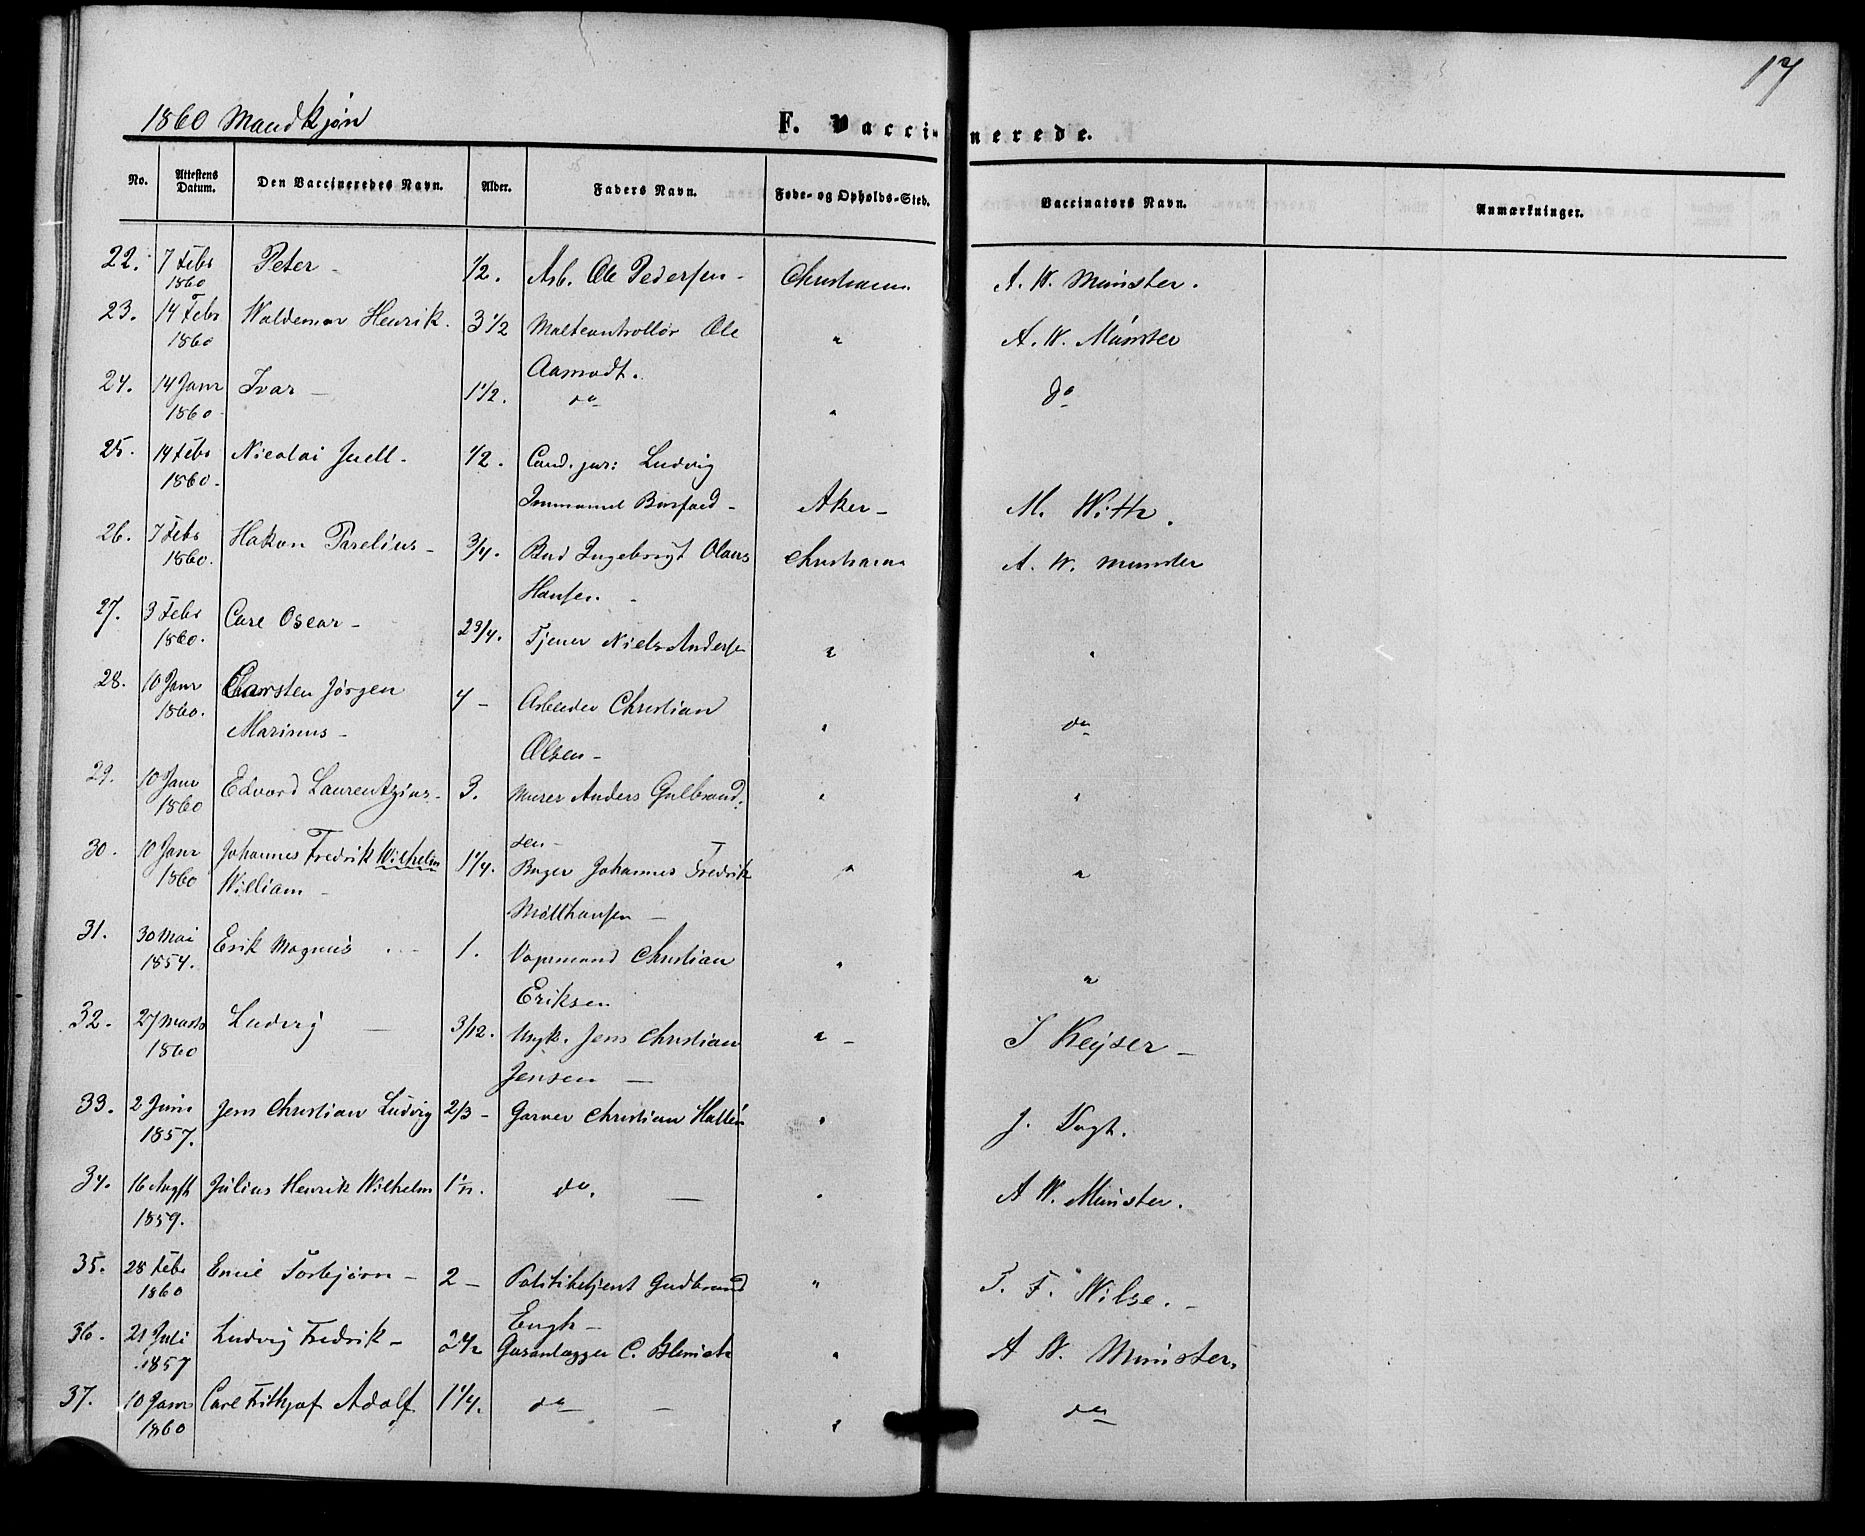 17
1860 Mandkjøn
F. Vaccinerede.
No. Attestens Datum. Den Vaccineredes Navn. Alder. Faders Navn. Føde- og Opholds-Sted. Vaccinators Navn. Anmærkninger.
22. 7 Febr Peter - 1/2. Arb. Ole Pedersen - Christiania. A. W. Münster.
1860
23. 14 Febr Waldemar Henrik. 3 1/2 Maltcontrollør Ole " A. W. Münster
1860 Aamodt.
24. 14 Janr Ivar - 1 1/2. do " do
1860
25. 14 Febr Nicolai Juell - 1/2. Cand. jur: Ludvig
1860. Immanuel - Aker - M. With.
26. 7 Febr Hakon Parelius - 3/4. Bud Ingebrigt Olaus Christiania A. W. Munster
1860. Hansen. -
27. 3 Febr Carl Oscar - 2 3/4. Tjener Niels Andersen " "
1860.
28. 10 Janr Carsten Jørgen 4 - Arbeider Christian " do
1860. Marinus - Olsen -
29. 10 Janr Edvard Laurentzius - 3. Murer Anders Gulbrand- " "
1860 sen -
30. 10 Janr Johannes Fredrik Wilhelm 1 1/4. Bager Johannes Fredrik " "
1860 William - Mølthausen -
31. 30 Mai Erik Magnus - 1. Vognmand Christian " "
1854. Eriksen
32. 27 Marts Ludvig - 3/12. Ungk. Jens Christian " - I Keyser -
1860 Jensen -
33. 2 Juni Jens Christian Ludvig 2/3 - Garver Christian Hallén " J. Vogt.
1857.
34. 16 Augst Julius Henrik Wilhelm do. - " A W. Münster.
1859.
35. 28 Febr Emil Torbjørn - 2 - Politibetjent Gudbrand " T. F. Wilse. -
1860 Engh -
36. 21 Juli Ludvig Fredrik - 2 1/2 C. " A W. Münster.
1857
37. 10 Janr Carl Frithjof Adolf 1 1/4. do - " do
1860